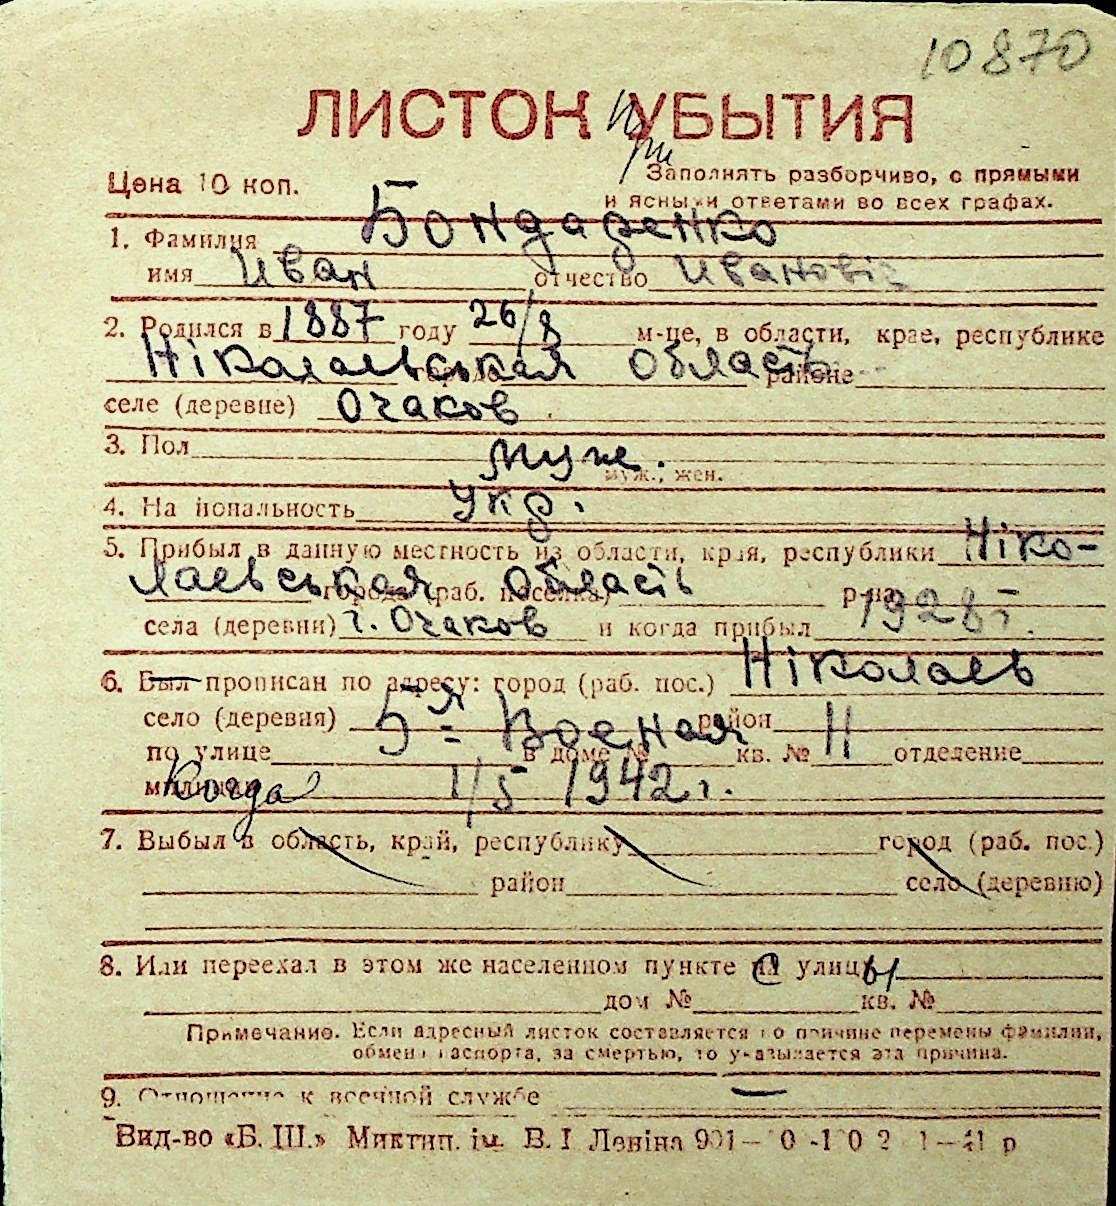 10870
ЛИСТОК УБЫТИЯ
При
Цена 10 коп.
Заполнять разборчиво, с прямыми
и ясными ответами во всех графах.
1. Фамилия Бондаренко
имя Иван отчество Ивановіч
2. Родился в 1887 году 26/8 м-це, в области, крае, республике
Ніколаевськая область районе
селе (деревне) Очаков
3. Пол муж.
муж., жен.
4. Национальность укр.
5. Прибыл в данную местность из области, края, республики Ніко-
лаевськая область города (раб. поселка) р-на
села (деревни) г. Очаков и когда прибыл 1928 г.
6. Был прописан по адресу: город (раб. пос.) Ніколаев
село (деревня) 5я Военая район
по улице в доме № кв. № 11 отделение
милиции Когда 1/5 1942 г.
7. Выбыл в область, край, республику город (раб. пос.)
район село (деревню)
8. Или переехал в этом же населенном пункте с улицы
дом № кв. №
Примечание. Если адресный листок составляется по причине перемены фамилии,
обмена паспорта, за смертью, то указывается эта причина.
9. Отношение к военной службе —
Вид-во «Б. Ш.» Миктип. ім. В. І. Леніна